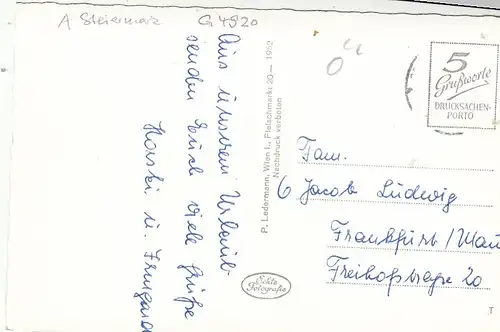 A Steiermark G 4920
Aus unserem Urlaub
senden Euch viele Grüße
Horski u. Irmgard
P. Ledermann, Wien I., Fleischmarkt 20 — 1952
Nachdruck verboten
Echte
Fotografie
5
Grußworte
DRUCKSACHEN-
PORTO
Fam.
6 Jacob Ludwig
Frankfurt/Main
20